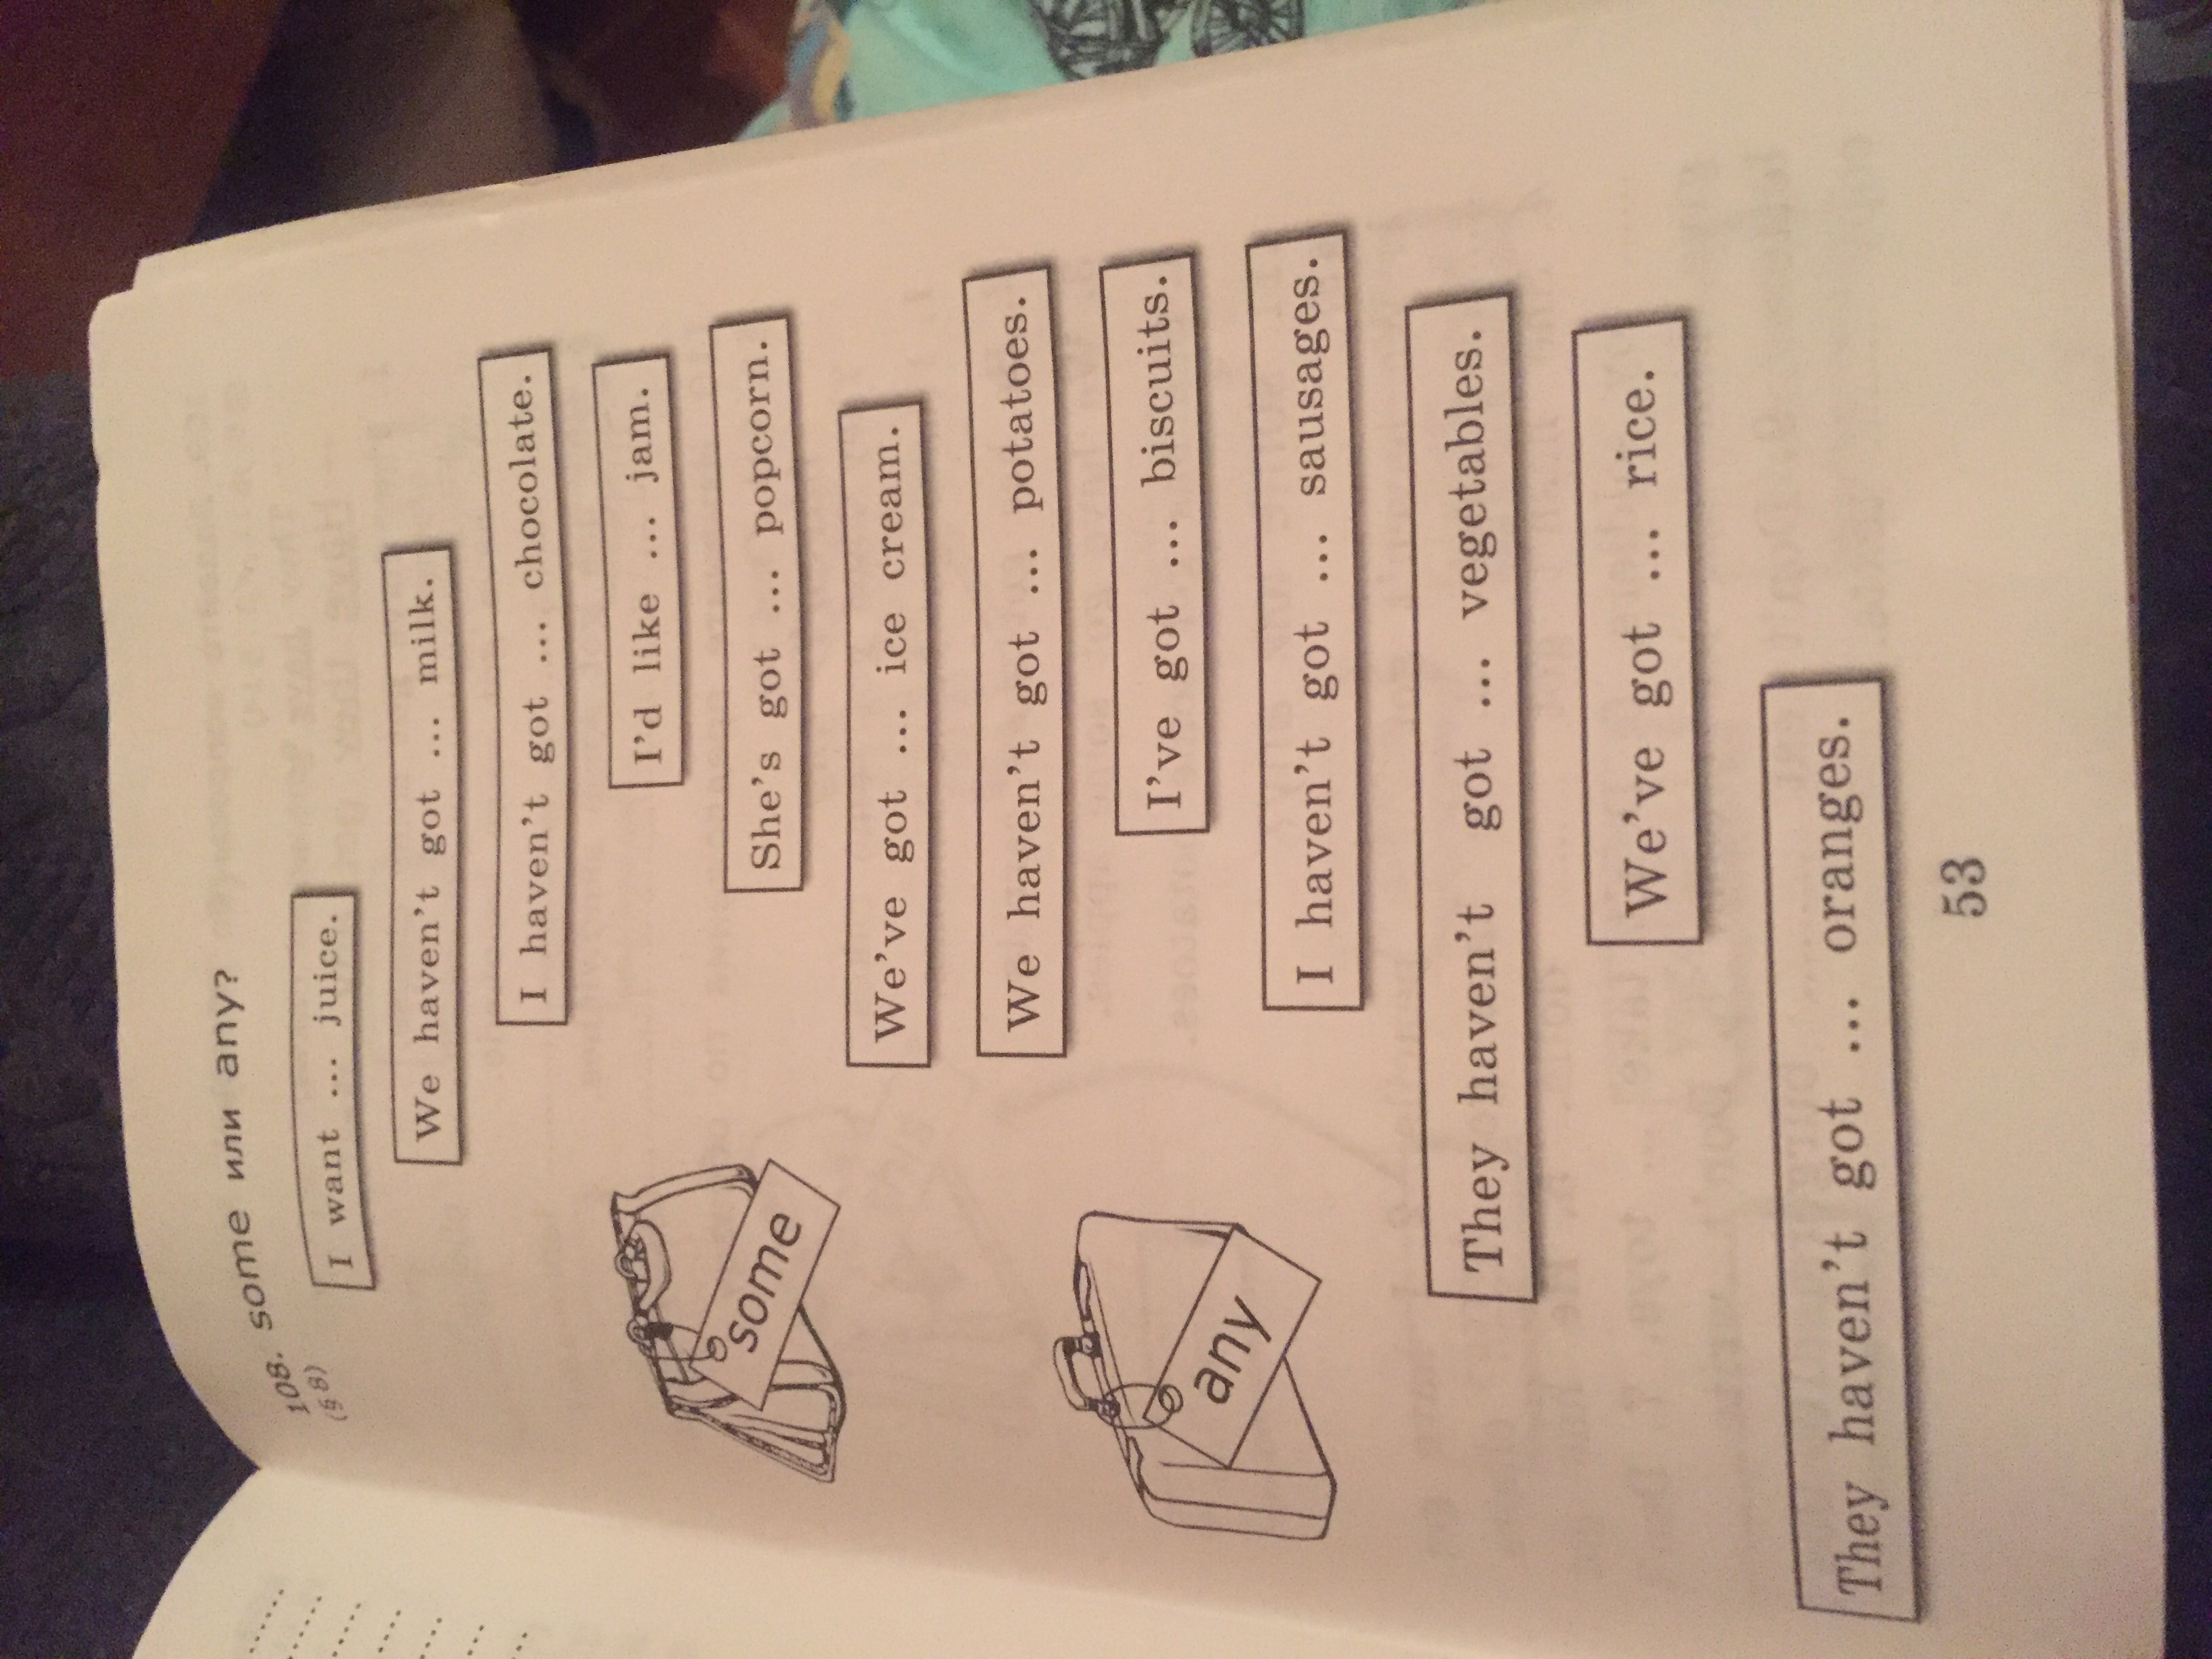 108. some или any?
(§ 8)
I want ... juice.
We haven't got ... milk.
I haven't got ... chocolate.
I'd like ... jam.
She's got ... popcorn.
some
We've got ... ice cream.
We haven't got ... potatoes.
I've got ... biscuits.
any
I haven't got ... sausages.
They haven't got ... vegetables.
We've got ... rice.
They haven't got ... oranges.
53